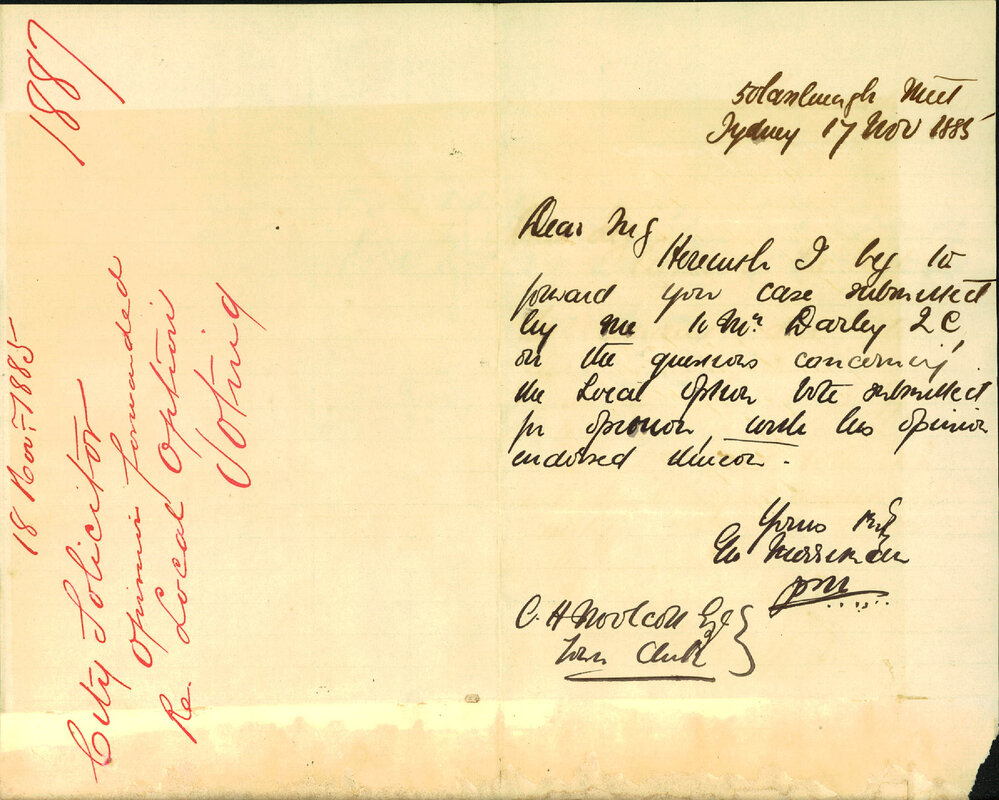 1887
18 Nov: 1885
City Solicitor
Opinion forwarded
Re. Local Option
Voting
50 Castlereagh Street
Sydney 17 Nov 1885
Dear Sir
Herewith I beg to
forward you case submitted
by me to Mr. Darley Q C,
on the questions concerning
the Local Option Vote submitted
for opinion, with his opinion
endorsed thereon.
Yours
Geo Merriman
C. H Woolcott Esq
Town Clerk